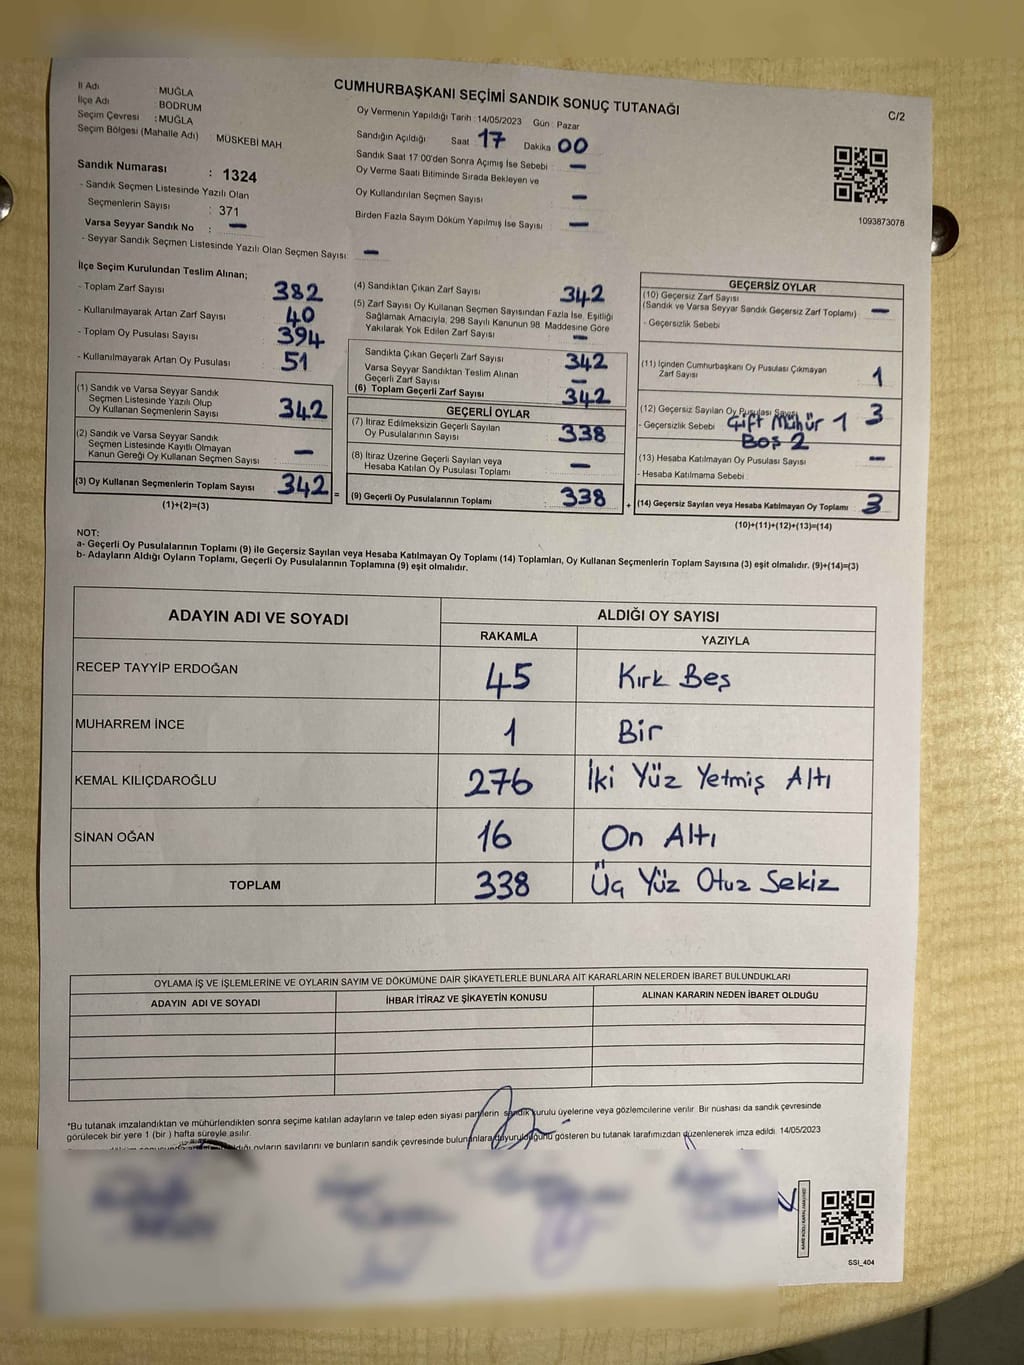 CUMHURBAŞKANI SEÇİMİ SANDIK SONUÇ TUTANAĞI
C/2
İl Adı : MUĞLA
İlçe Adı : BODRUM
Seçim Çevresi : MUĞLA
Seçim Bölgesi (Mahalle Adı) : MÜSKEBİ MAH
Sandık Numarası : 1324
- Sandık Seçmen Listesinde Yazılı Olan
Seçmenlerin Sayısı : 371
Varsa Seyyar Sandık No : –
- Seyyar Sandık Seçmen Listesinde Yazılı Olan Seçmen Sayısı –
Oy Vermenin Yapıldığı Tarih : 14/05/2023 Gün : Pazar
Sandığın Açıldığı Saat 17 Dakika 00
Sandık Saat 17 00'den Sonra Açımış İse Sebebi –
Oy Verme Saati Bitiminde Sırada Bekleyen ve
Oy Kullandırılan Seçmen Sayısı –
Birden Fazla Sayım Döküm Yapılmış İse Sayısı –
1093873078
İlçe Seçim Kurulundan Teslim Alınan;
- Toplam Zarf Sayısı 382
- Kullanılmayarak Artan Zarf Sayısı 40
- Toplam Oy Pusulası Sayısı 394
- Kullanılmayarak Artan Oy Pusulası 51
(1) Sandık ve Varsa Seyyar Sandık
Seçmen Listesinde Yazılı Olup
Oy Kullanan Seçmenlerin Sayısı 342
(2) Sandık ve Varsa Seyyar Sandık
Seçmen Listesinde Kayıtlı Olmayan
Kanun Gereği Oy Kullanan Seçmen Sayısı –
(3) Oy Kullanan Seçmenlerin Toplam Sayısı 342 =
(1)+(2)=(3)
(4) Sandıktan Çıkan Zarf Sayısı 342
(5) Zarf Sayısı Oy Kullanan Seçmen Sayısından Fazla İse, Eşitliği
Sağlamak Amacıyla, 298 Sayılı Kanunun 98. Maddesine Göre
Yakılarak Yok Edilen Zarf Sayısı –
Sandıkta Çıkan Geçerli Zarf Sayısı 342
Varsa Seyyar Sandıktan Teslim Alınan
Geçerli Zarf Sayısı –
(6) Toplam Geçerli Zarf Sayısı 342
GEÇERLİ OYLAR
(7) İtiraz Edilmeksizin Geçerli Sayılan
Oy Pusulalarının Sayısı 338
(8) İtiraz Üzerine Geçerli Sayılan veya
Hesaba Katılan Oy Pusulası Toplamı –
(9) Geçerli Oy Pusulalarının Toplamı : 338 +
GEÇERSİZ OYLAR
(10) Geçersiz Zarf Sayısı
(Sandık ve Varsa Seyyar Sandık Geçersiz Zarf Toplamı) –
- Geçersizlik Sebebi
(11) İçinden Cumhurbaşkanı Oy Pusulası Çıkmayan
Zarf Sayısı 1
(12) Geçersiz Sayılan Oy Pusulası Sayısı 3
- Geçersizlik Sebebi Çift Mühür 1
Boş 2
(13) Hesaba Katılmayan Oy Pusulası Sayısı –
- Hesaba Katılmama Sebebi
(14) Geçersiz Sayılan veya Hesaba Katılmayan Oy Toplamı 3
(10)+(11)+(12)+(13)=(14)
NOT:
a- Geçerli Oy Pusulalarının Toplamı (9) ile Geçersiz Sayılan veya Hesaba Katılmayan Oy Toplamı (14) Toplamları, Oy Kullanan Seçmenlerin Toplam Sayısına (3) eşit olmalıdır. (9)+(14)=(3)
b- Adayların Aldığı Oyların Toplamı, Geçerli Oy Pusulalarının Toplamına (9) eşit olmalıdır.
ADAYIN ADI VE SOYADI ALDIĞI OY SAYISI
RAKAMLA YAZIYLA
RECEP TAYYİP ERDOĞAN 45 Kırk Beş
MUHARREM İNCE 1 Bir
KEMAL KILIÇDAROĞLU 276 İki Yüz Yetmiş Altı
SİNAN OĞAN 16 On Altı
TOPLAM 338 Üç Yüz Otuz Sekiz
OYLAMA İŞ VE İŞLEMLERİNE VE OYLARIN SAYIM VE DÖKÜMÜNE DAİR ŞİKAYETLERLE BUNLARA AİT KARARLARIN NELERDEN İBARET BULUNDUKLARI
ADAYIN ADI VE SOYADI İHBAR İTİRAZ VE ŞİKAYETİN KONUSU ALINAN KARARIN NEDEN İBARET OLDUĞU
*Bu tutanak imzalandıktan ve mühürlendikten sonra seçime katılan adayların ve talep eden siyasi partilerin sandık kurulu üyelerine veya gözlemcilerine verilir. Bir nüshası da sandık çevresinde
görülecek bir yere 1 (bir ) hafta süreyle asılır.
oyların sayılarını ve bunların sandık çevresinde bulunanlara duyurulduğunu gösteren bu tutanak tarafımızdan düzenlenerek imza edildi. 14/05/2023
SSI_404